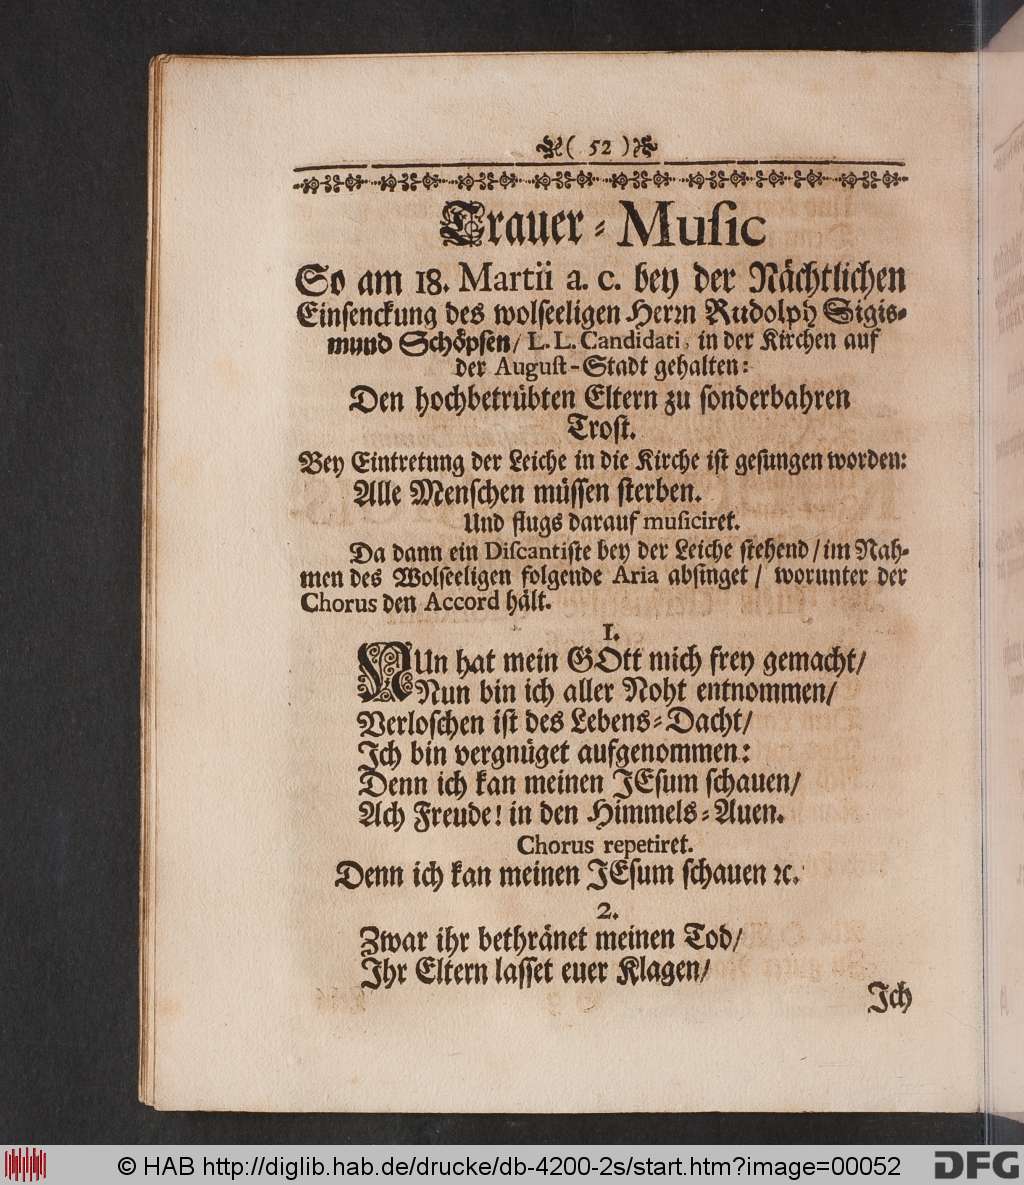 ( 52 )
Trauer-Music
So am 18. Martii a. c. bey der Nächtlichen
Einsenckung des wolseeligen Herrn Rudolph Sigis-
mund Schöpsen/ L. L. Candidati, in der Kirchen auf
der August-Stadt gehalten:
Den hochbetrübten Eltern zu sonderbahren
Trost.
Bey Eintretung der Leiche in die Kirche ist gesungen worden:
Alle Menschen müssen sterben.
Und flugs darauf musiciret.
Da dann ein Discantiste bey der Leiche stehend/ im Nah-
men des Wolseeligen folgende Aria absinget/ worunter der
Chorus den Accord hält.
1.
NUn hat mein GOtt mich frey gemacht/
Nun bin ich aller Noht entnommen/
Verloschen ist des Lebens-Dacht/
Ich bin vergnüget aufgenommen:
Denn ich kan meinen JEsum schauen/
Ach Freude! in den Himmels-Auen.
Chorus repetiret.
Denn ich kan meinen JEsum schauen ꝛc.
2.
Zwar ihr bethränet meinen Tod/
Ihr Eltern lasset euer Klagen/
Ich
© HAB http://diglib.hab.de/drucke/db-4200-2s/start.htm?image=00052
DFG